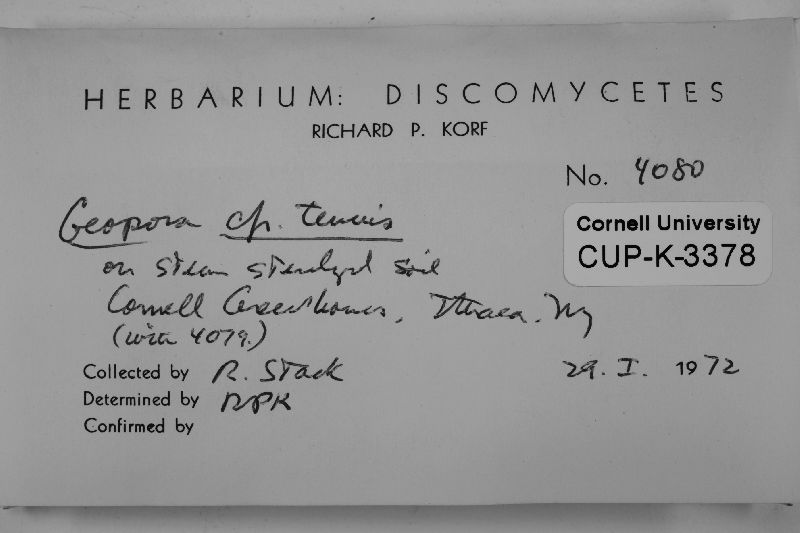 HERBARIUM: DISCOMYCETES
RICHARD P. KORF
No. 4080
Geopora cfr. tenuis
Cornell University
CUP-K-3378
on steam sterilyzd soil
Cornell Greenhouses, Ithaca. NY
(with 4079.)
Collected by R. Stack 29. I. 1972
Determined by RPK
Confirmed by